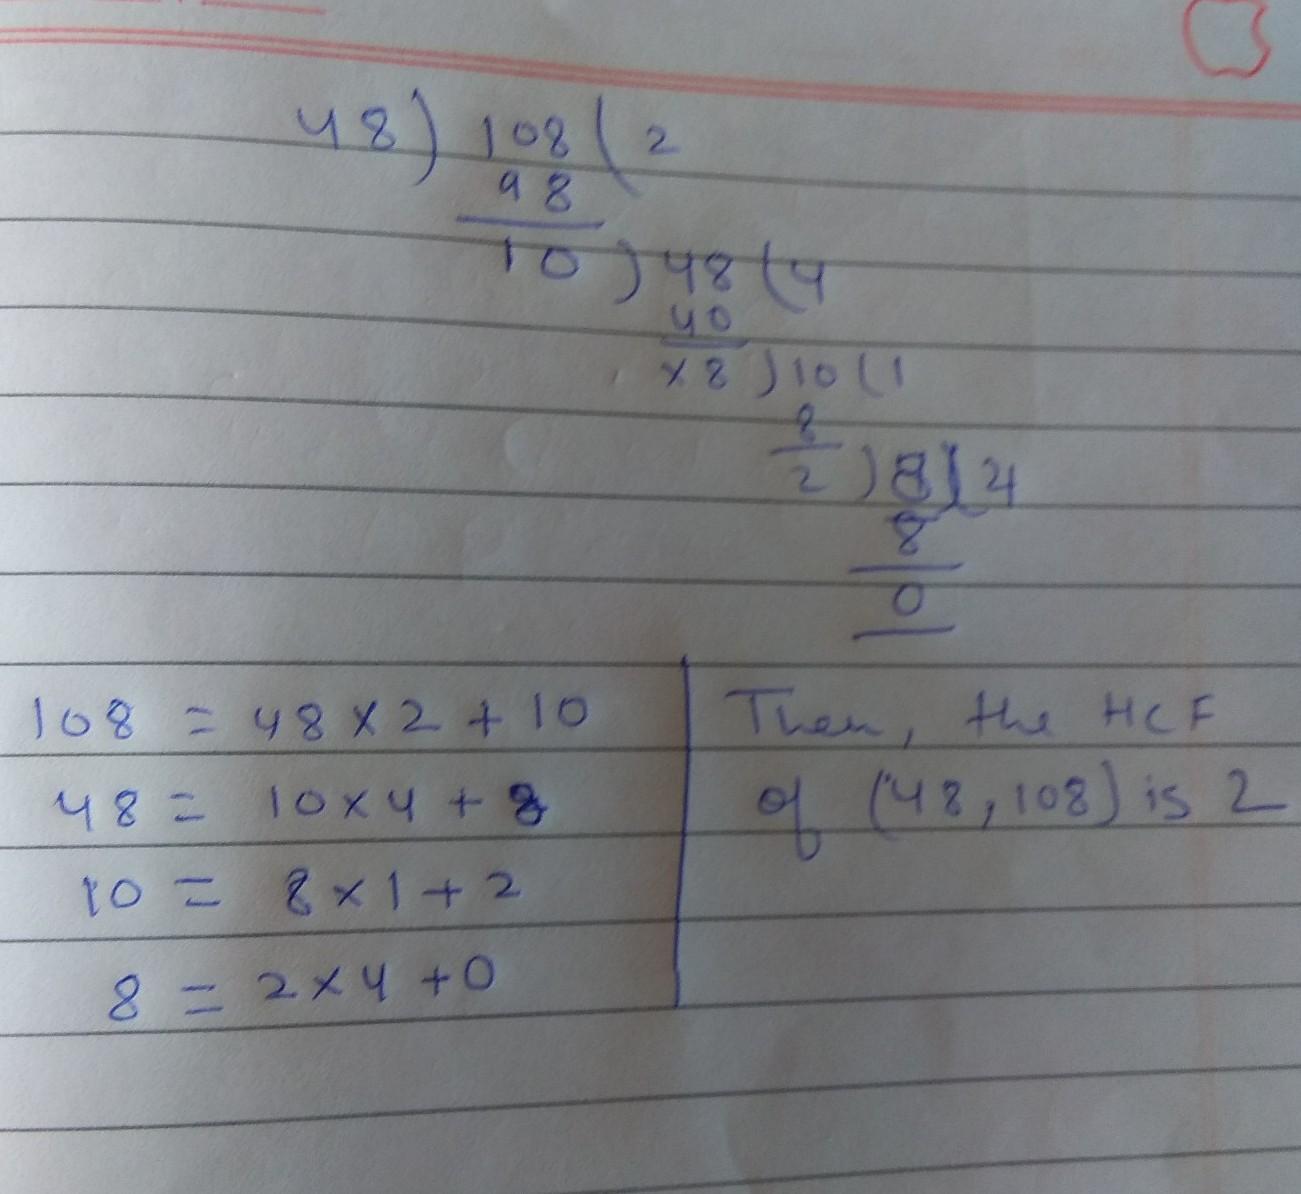 48) 108 (2
98
10) 48 (4
40
x8) 10 (1
8
2) 8 ( 4
8
0
108 = 48 x 2 + 10
48 = 10 x 4 + 8
10 = 8 x 1 + 2
8 = 2 x 4 + 0
Then, the HCF
of (48, 108) is 2